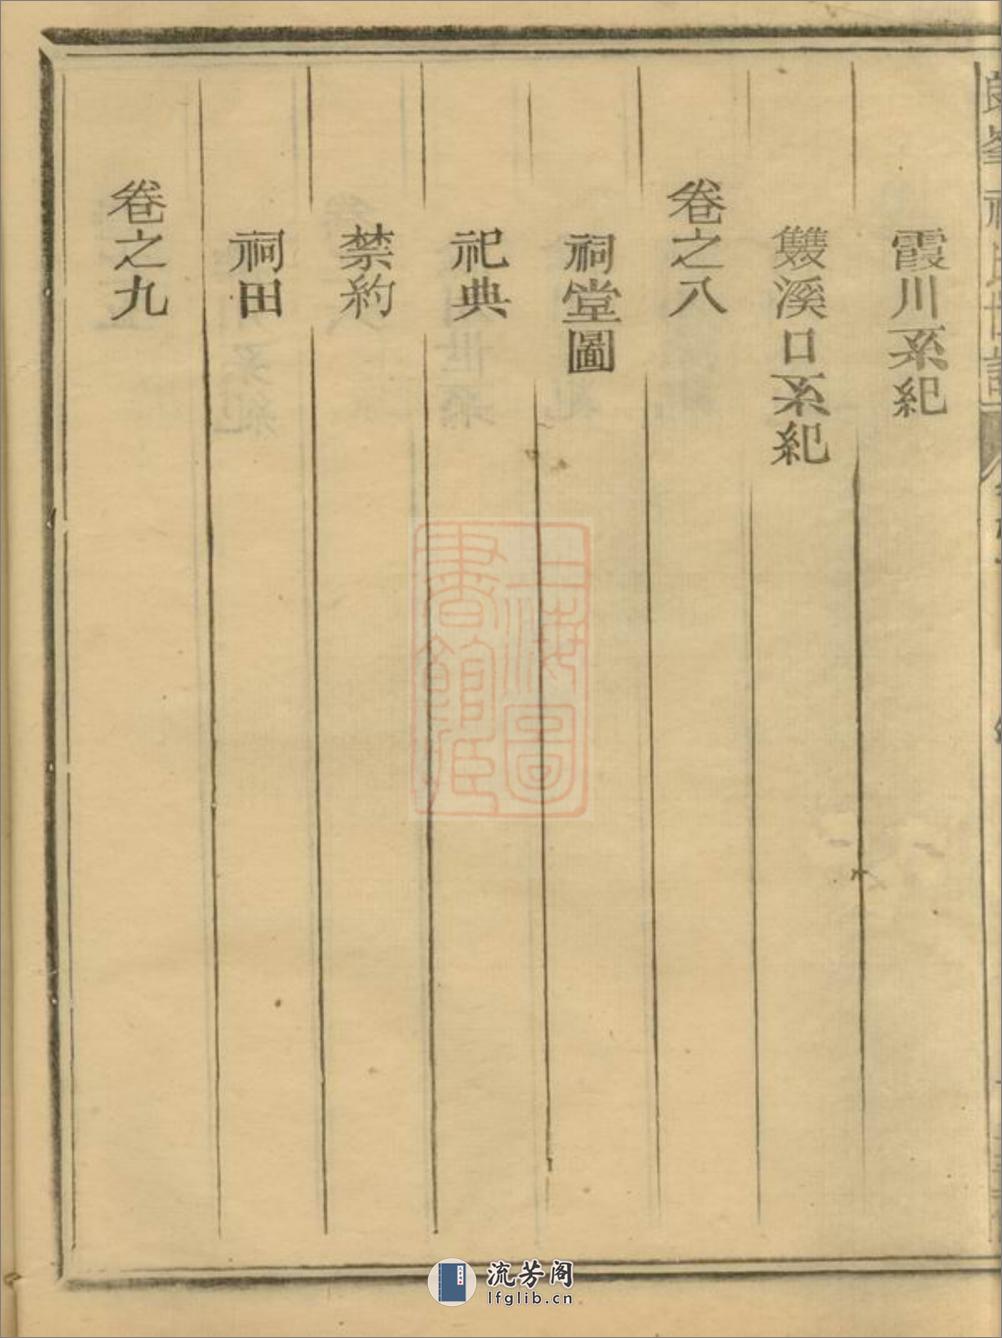 霞川系紀
雙溪口系紀
卷之八
祠堂圖
祀典
禁約
祠田
卷之九
上海圖
書館藏
流芳阁
lfglib.cn